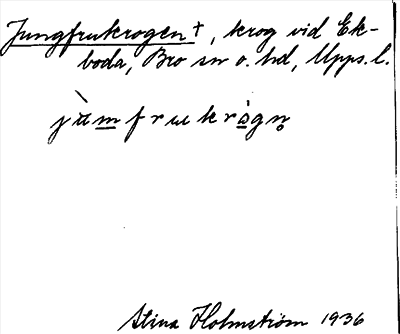 Jungfrukrogen †, krog vid Ek-
boda, Bro sn o. hd, Upps. l.
Stina Holmström 1936